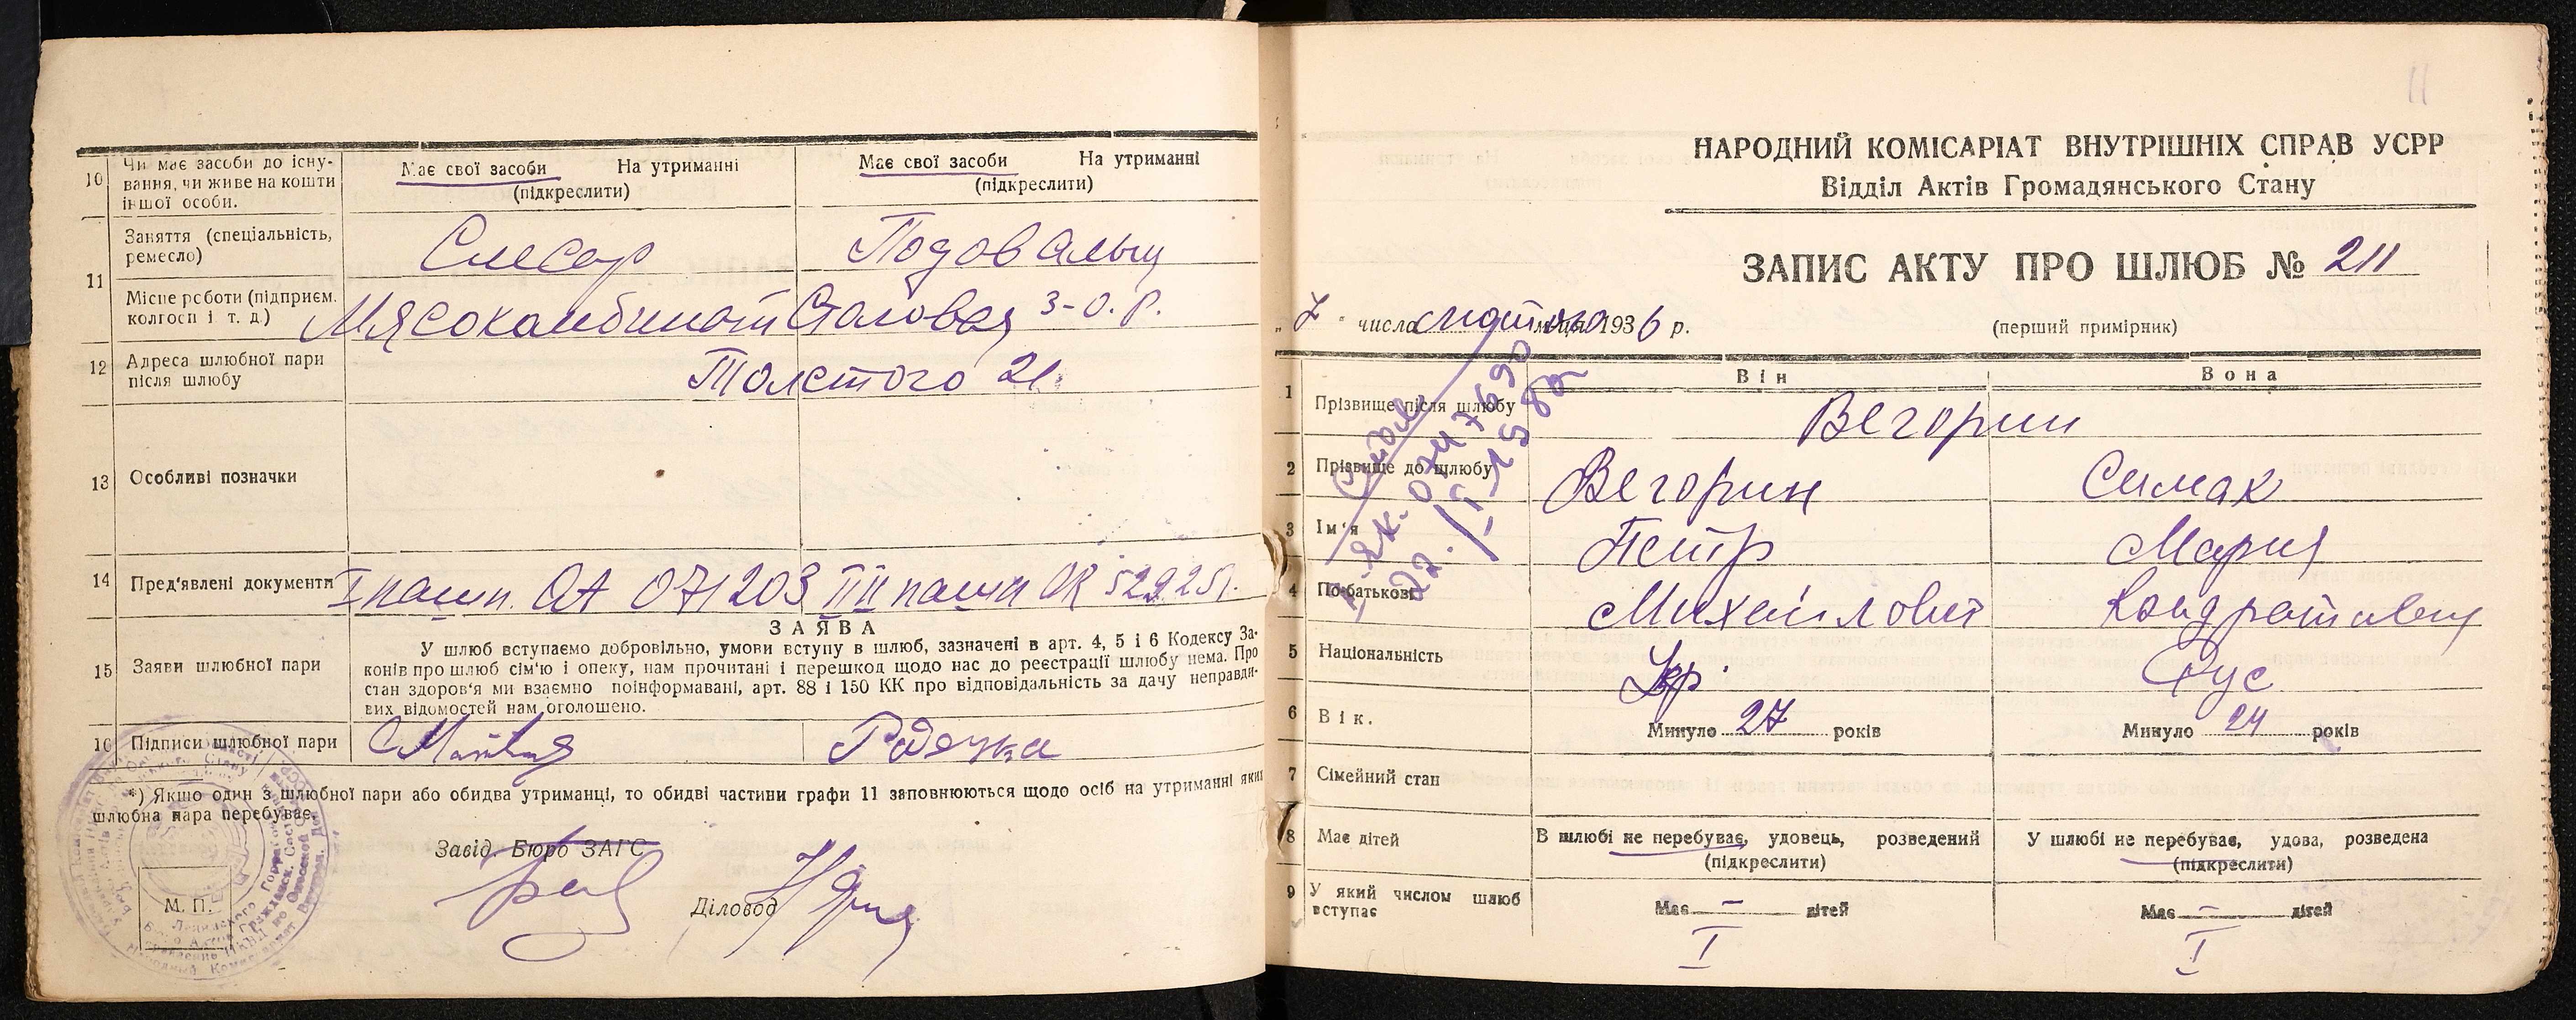 10 Чи має засоби до існу-
вання, чи живе на кошти
іншої особи.
Має свої засоби На утриманні
(підкреслити)
Має свої засоби На утриманні
(підкреслити)
11 Заняття (спеціальність,
ремесло)
Слесар
Місце роботи (підприєм.
колгосп і т. д.)
Мясокомбинат
Столовая З-О.Р.
12 Адреса шлюбної пари
після шлюбу
Толстого 21.
13 Особливі позначки
14 Пред'явлені документи
I пашп. ОА 071203
15 Заяви шлюбної пари
ЗАЯВА
У шлюб вступаємо добровільно, умови вступу в шлюб, зазначені в арт. 4, 5 і 6 Кодексу За-
конів про шлюб сім'ю і опеку, нам прочитані і перешкод щодо нас до реєстрації шлюбу нема. Про
стан здоров'я ми взаємно поінформавані, арт. 88 і 150 КК про відповідальність за дачу неправди-
вих відомостей нам оголошено.
16 Підписи шлюбної пари
*) Якшо один з шлюбної пари або обидва утриманці, то обидві частини графи 11 заповнюються щодо осіб на утриманні яких
шлюбна пара перебуває.
Завід. Бюро ЗАГС
М. П.
Діловод
11
НАРОДНИЙ КОМІСАРІАТ ВНУТРІШНІХ СПРАВ УСРР
Відділ Актів Громадянського Стану
ЗАПИС АКТУ ПРО ШЛЮБ № 211
„ 7 " числа лютого м-ця 1936 р.
(перший примірник)
Він Вона
1 Прізвище після шлюбу
Вегорин
2 Прізвище до шлюбу
Вегорин Симак
3 Ім'я
Петр Мария
4 По-батькові
Михайлович Кондратовна
5 Національність
Укр. Рус
6 Вік.
Минуло 27 років Минуло 24 років
7 Сімейний стан
8 Має дітей
В шлюбі не перебуває, удовець, розведений
(підкреслити)
У шлюбі не перебуває, удова, розведена
(підкреслити)
9 У який числом шлюб
вступає
Має – дітей Має – дітей
I I